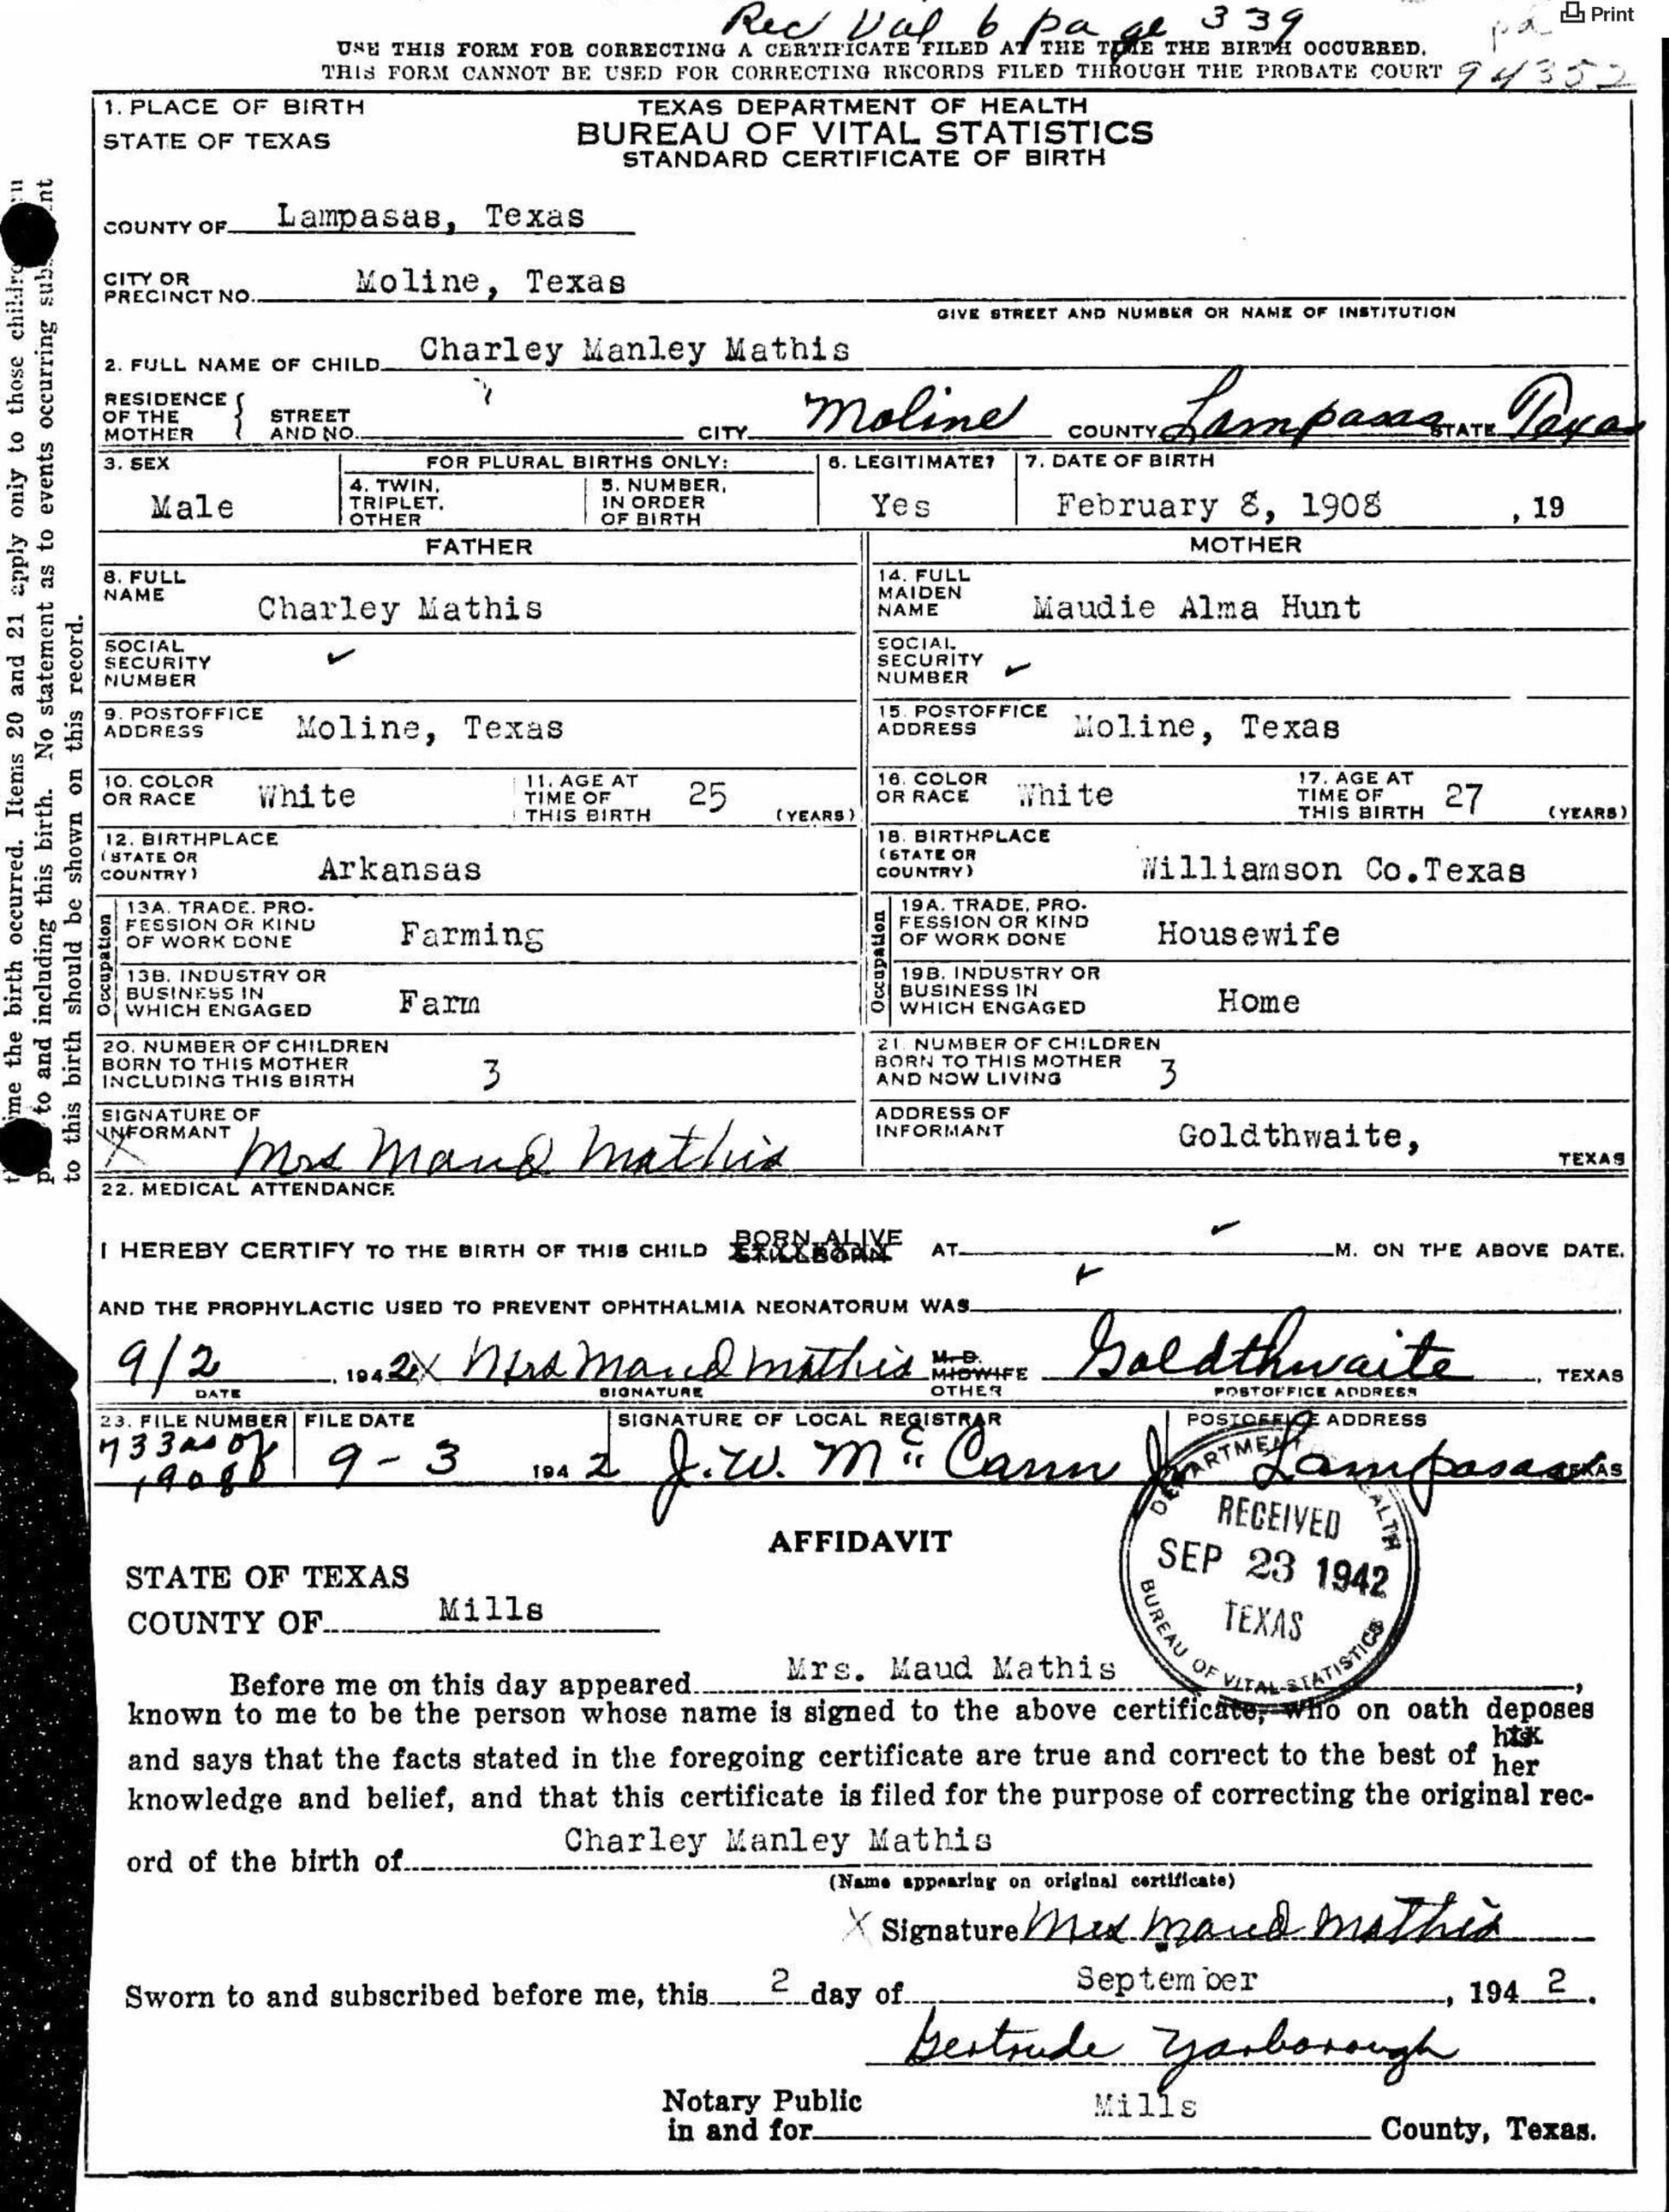 Rec Vol 6 page 339
Print
USE THIS FORM FOR CORRECTING A CERTIFICATE FILED AT THE TIME THE BIRTH OCCURRED.
pd
THIS FORM CANNOT BE USED FOR CORRECTING RECORDS FILED THROUGH THE PROBATE COURT
94352
1. PLACE OF BIRTH
STATE OF TEXAS
TEXAS DEPARTMENT OF HEALTH
BUREAU OF VITAL STATISTICS
STANDARD CERTIFICATE OF BIRTH
COUNTY OF Lampasas, Texas
CITY OR
PRECINCT NO. Moline, Texas
GIVE STREET AND NUMBER OR NAME OF INSTITUTION
2. FULL NAME OF CHILD Charley Manley Mathis
RESIDENCE
OF THE
MOTHER
STREET
AND NO.
CITY Moline COUNTY Lampasas STATE Texas
3. SEX
Male
FOR PLURAL BIRTHS ONLY:
4. TWIN,
TRIPLET,
OTHER
5. NUMBER,
IN ORDER
OF BIRTH
6. LEGITIMATE?
Yes
7. DATE OF BIRTH
February 8, 1908 , 19
FATHER
MOTHER
8. FULL
NAME
Charley Mathis
14. FULL
MAIDEN
NAME
Maudie Alma Hunt
SOCIAL
SECURITY
NUMBER
✓
SOCIAL
SECURITY
NUMBER
✓
9. POSTOFFICE
ADDRESS
Moline, Texas
15. POSTOFFICE
ADDRESS
Moline, Texas
10. COLOR
OR RACE
White
11. AGE AT
TIME OF
THIS BIRTH
25 (YEARS)
16. COLOR
OR RACE
White
17. AGE AT
TIME OF
THIS BIRTH
27 (YEARS)
12. BIRTHPLACE
(STATE OR
COUNTRY)
Arkansas
18. BIRTHPLACE
(STATE OR
COUNTRY)
Williamson Co.Texas
Occupation
13A. TRADE, PRO-
FESSION OR KIND
OF WORK DONE
Farming
Occupation
19A. TRADE, PRO-
FESSION OR KIND
OF WORK DONE
Housewife
13B. INDUSTRY OR
BUSINESS IN
WHICH ENGAGED
Farm
19B. INDUSTRY OR
BUSINESS IN
WHICH ENGAGED
Home
20. NUMBER OF CHILDREN
BORN TO THIS MOTHER
INCLUDING THIS BIRTH
3
21. NUMBER OF CHILDREN
BORN TO THIS MOTHER
AND NOW LIVING
3
SIGNATURE OF
INFORMANT
X Mrs Maud Mathis
ADDRESS OF
INFORMANT
Goldthwaite,
TEXAS
22. MEDICAL ATTENDANCE
I HEREBY CERTIFY TO THE BIRTH OF THIS CHILD BORN ALIVE STILLBORN AT ✓ M. ON THE ABOVE DATE.
AND THE PROPHYLACTIC USED TO PREVENT OPHTHALMIA NEONATORUM WAS ✓
9/2 , 1942 X Mrs Maud Mathis M. D. MIDWIFE OTHER Goldthwaite , TEXAS
DATE SIGNATURE POSTOFFICE ADDRESS
23. FILE NUMBER FILE DATE SIGNATURE OF LOCAL REGISTRAR POSTOFFICE ADDRESS
733 as of
1908 9-3 1942 J. W. McCann Jr Lampasas TEXAS
DEPARTMENT HEALTH
RECEIVED
SEP 23 1942
TEXAS
BUREAU OF VITAL STATISTICS
AFFIDAVIT
STATE OF TEXAS
COUNTY OF Mills
Before me on this day appeared Mrs. Maud Mathis ,
known to me to be the person whose name is signed to the above certificate, who on oath deposes
and says that the facts stated in the foregoing certificate are true and correct to the best of his her
knowledge and belief, and that this certificate is filed for the purpose of correcting the original rec-
ord of the birth of Charley Manley Mathis
(Name appearing on original certificate)
X Signature Mrs Maud Mathis
Sworn to and subscribed before me, this 2 day of September , 1942.
Gertrude Yarborough
Notary Public
in and for Mills County, Texas.
me the birth occurred. Items 20 and 21 apply only to those
to and including this birth. No statement as to events occurring
to this birth should be shown on this record.